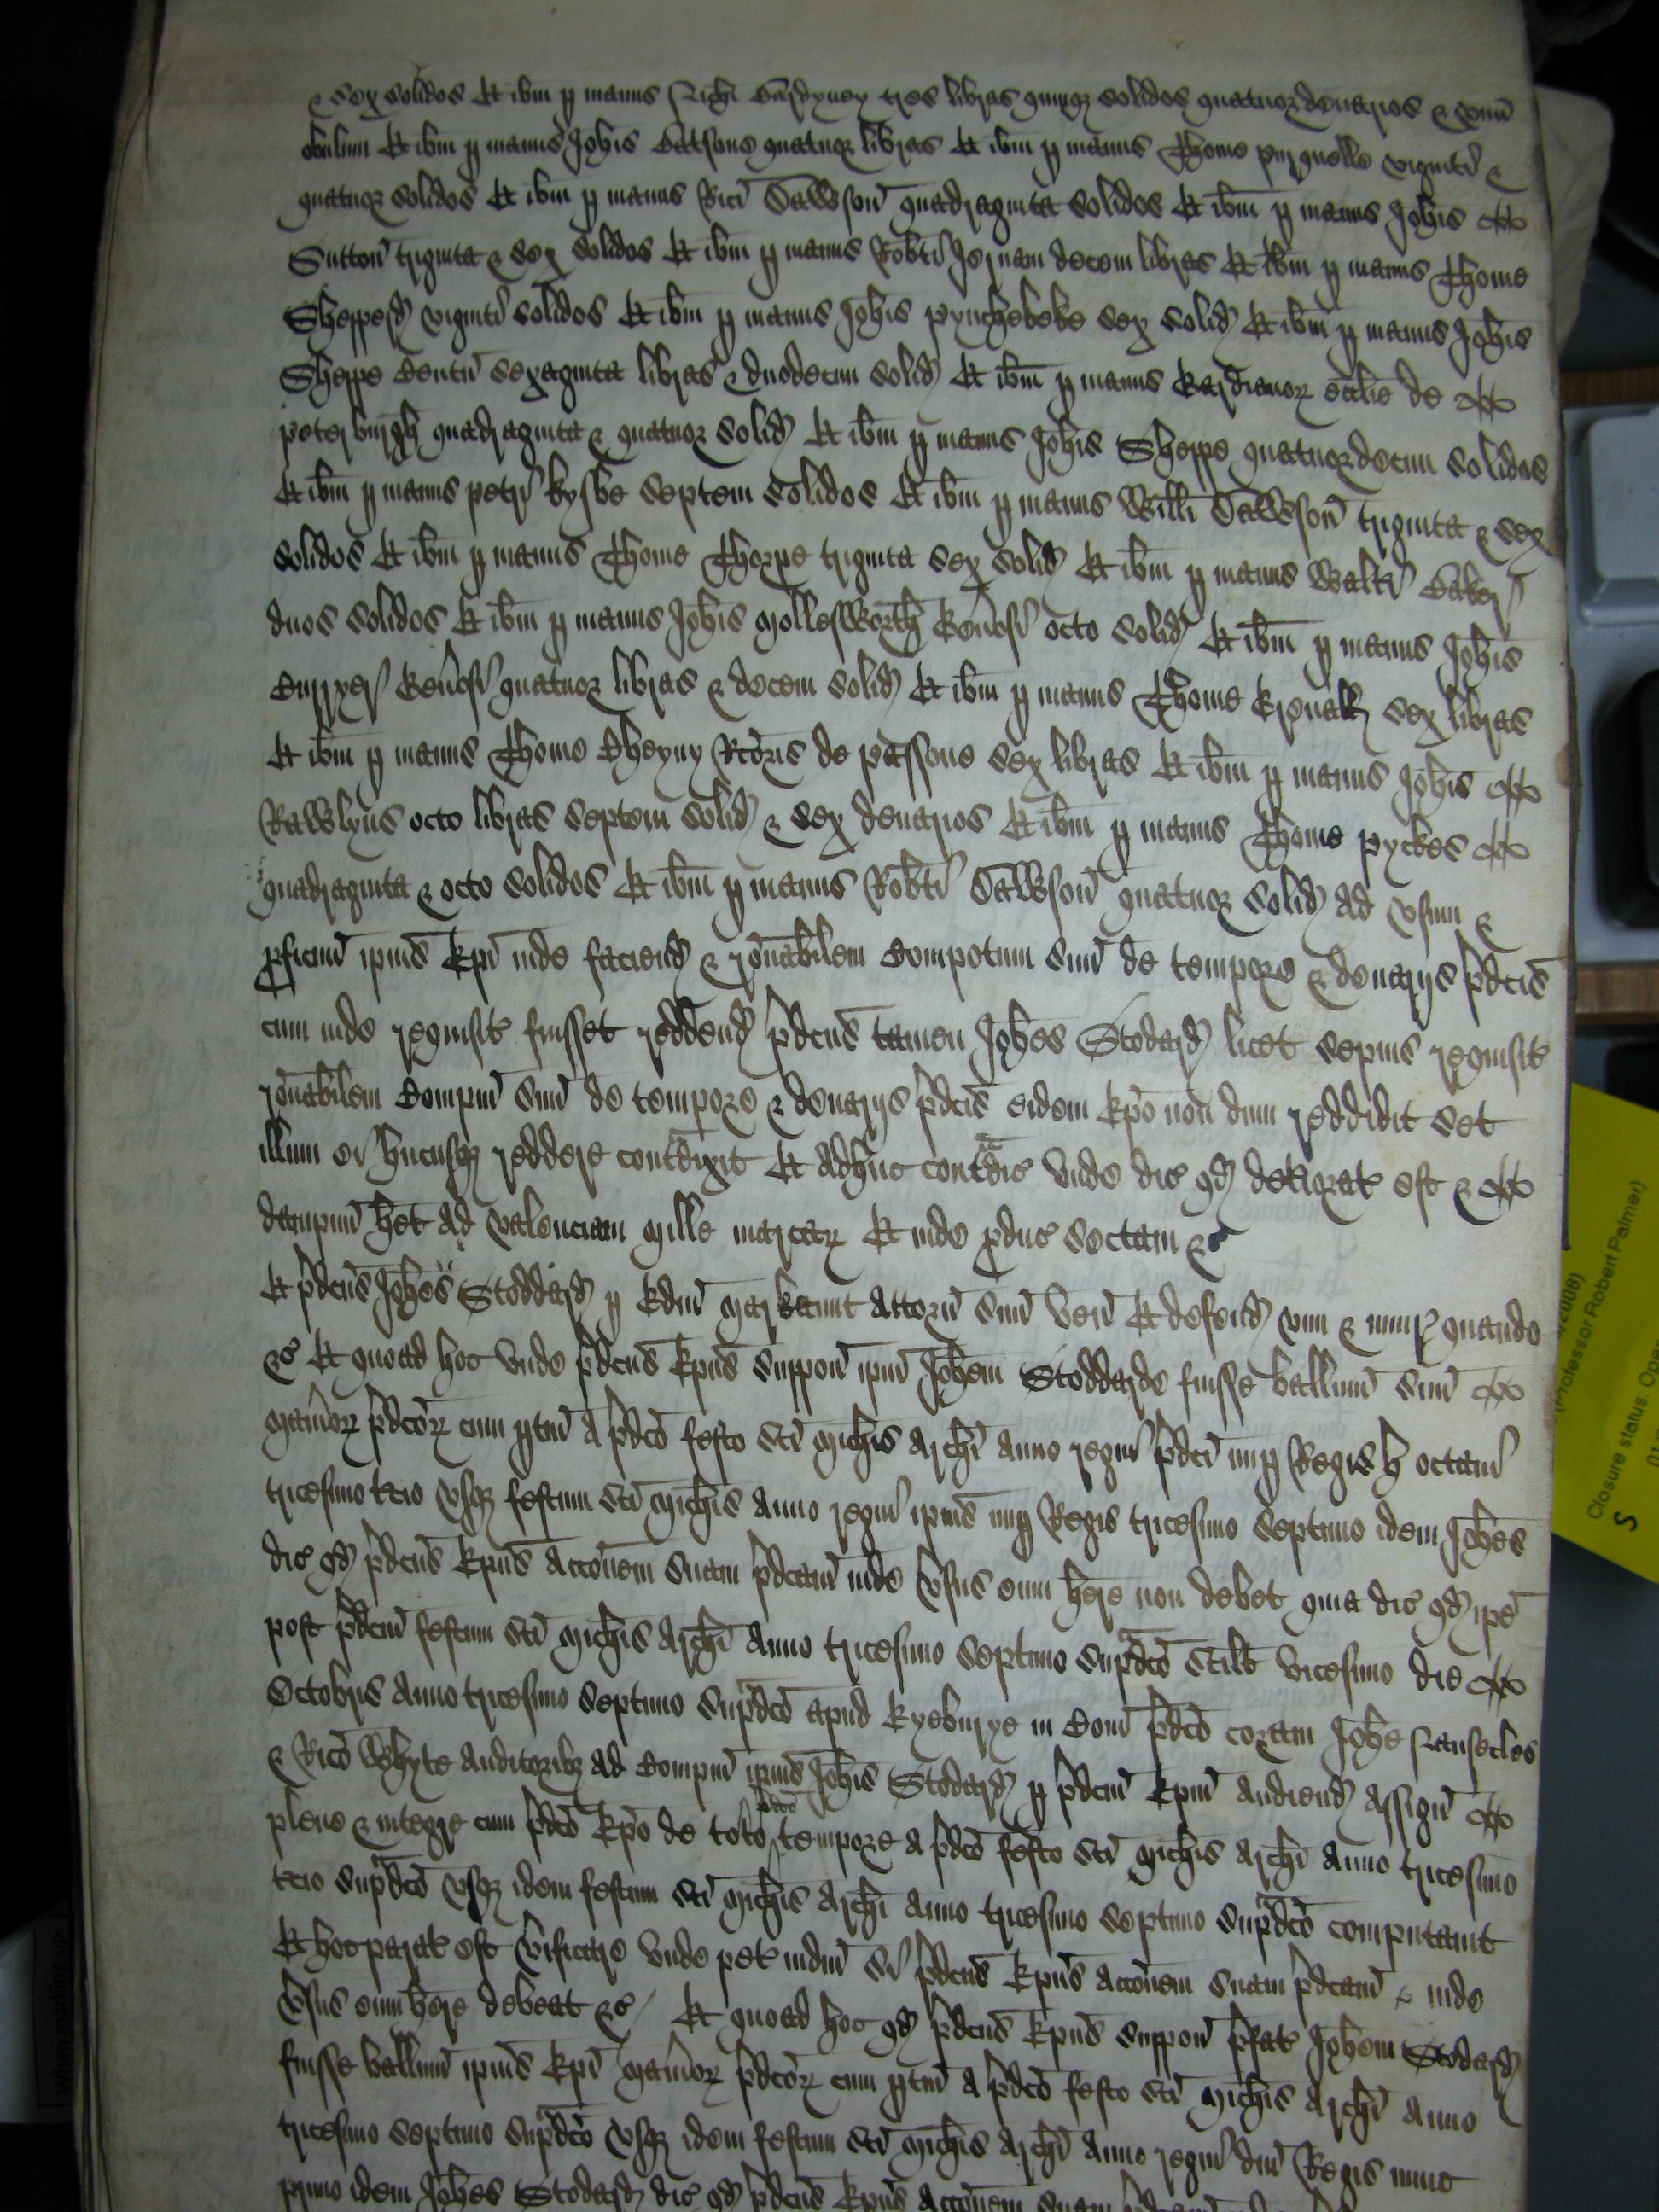 & sex solidos Et ibm p manus Rici Bardyney tres libras quinqz solidos quatuor denarios & unu
obulum Et ibm p manus Johis Batsons quatuor libras Et ibm p manus Thome viginti &
quatuor solidos Et ibm p manus Rici Dawson quadraginta solidos Et ibm p manus Johis
Sutton triginta & sex solidos Et ibm p manus Robti decem libras Et ibm p manus Thome
Sheppd viginti solidos Et ibm p manus Johis Pynchebeke sex solid Et ibm p manus Johis
Sheppe Centu sexaginta libras & duodecim solid Et ibm p manus Gardianor ecclie de
Peterburgh quadraginta & quatuor solid Et ibm p manus Johis Sheppe quatuordecim solidos
Et ibm p manus Petri Kysbe septem solidos Et ibm p manus Willi Dawson triginta & sex
solidos Et ibm p manus Thome Thorpe triginta sex solid Et ibm p manus Walti Baker
duos solidos Et ibm p manus Johis Mollesworth octo solid Et ibm p manus Johis
quatuor libras & decem solid Et ibm p manus Thome sex libras
Et ibm p manus Thome Cheyny Rcoris de Passone sex libras Et ibm p manus Johis
Rawlyns octo libras septem solid & sex denarios Et ibm p manus Thome Pyckes
quadraginta & octo solidos Et ibm p manus Robti Dawson quatuor solid ad usum &
pficuu ipius Epi inde faciend & ronabilem Compotum suu de tempore & denariis pdcis
cum inde requisit fuisset reddend pdcus tamen Johes Stodard licet sepius requisit
ronabilem Compm suu de tempore & denariis pdcis eidem Epo non dum reddidit set
illum ei hucusqz reddere contdixit Et adhuc contdic Unde dic qd deteriorat est &
dampnu het ad valenciam Mille marcar Et inde pduc sectam &c
Et pdcus Johes Stoddard p Edm Markaunt Attorn suu ven Et defend vim & iniur quando
&c Et quoad hoc unde pdcus Epus suppon ipm Johem Stoddarde fuisse ballium suu
Manior pdcor cum ptin a pdco festo Sci Michis Archi anno regni pdci nup Regis H octavi
tricesimo tcio usqz festum Sci Michis anno regni ipius nup Regis tricesimo septimo idem Johes
dic qd pdcus Epus accionem suam pdcam inde vsus eum here non debet quia dic qd ipe
post pdcm festum Sci Michis Archi Anno tricesimo septimo supdco scilt vicesimo die
Octobris Anno tricesimo septimo supdco apud Kyeburye in Com pdco coram Johe
& Rico Whyte auditoribz ad Compm ipius Johis Stodard p pdcm Epm audiend assign
plene & integre cum pdco Epo de toto pdco tempore a pdco festo Sci Michis Archi anno tricesimo
tcio supdco usqz idem festum Sci Michis Archi anno tricesimo septimo supdco computavit
Et hoc parat est vificare Unde pet iudm si pdcus Epus accionem suam pdcam inde
vsus eum here debeat &c Et quoad hoc qd pdcus Epus suppon pfat Johem Stodard
fuisse ballium ipius Epi Manior pdcor cum ptin a pdco festo Sci Michis Archi anno
tricesimo septimo supdco usqz idem festum Sci Michis Archi anno regni dni Regis nunc
primo idem Johes Stodard dic qd pdcus Epus accionem suam
(Professor Robert Palmer)
Closure status: Ope
When marking up